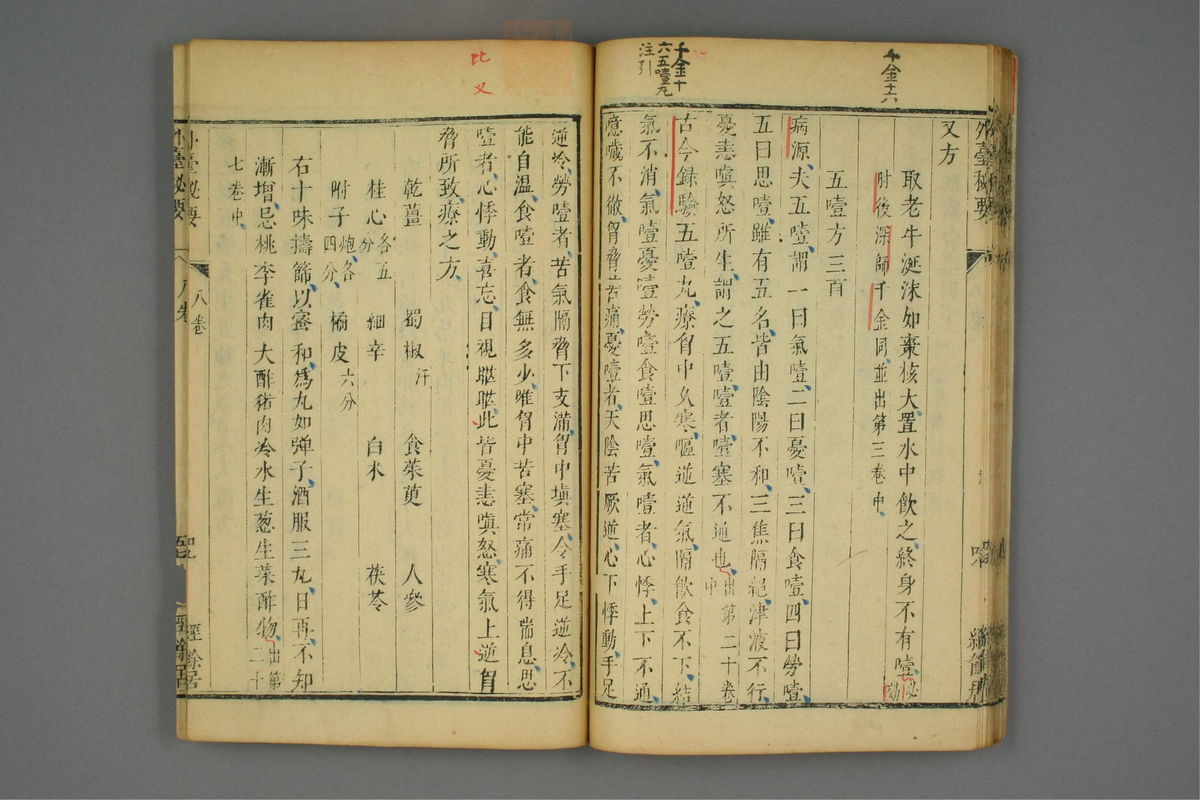 千金十六
千金十
六五噎丸
注引
外臺秘要
又方
取老牛涎沫如棗核大置水中飲之終身不有噎秘効
肘後深師千金同並出第三卷中
五噎方三首
病源夫五噎謂一曰氣噎二曰憂噎三曰食噎四曰勞噎
五曰思噎雖有五名皆由陰陽不和三焦隔絕津液不行
憂恚嗔怒所生謂之五噎噎者噎塞不通也出第二十卷中
古今録驗五噎丸療胷中久寒嘔逆逆氣隔飲食不下結
氣不消氣噎憂噎勞噎食噎思噎氣噎者心悸上下不通
噫噦不徹胷脅苦痛憂噎者天陰苦厥逆心下悸動手足
比文
逆冷勞噎者苦氣隔脅下支滿胷中塡塞令手足逆冷不
能自温食噎者食無多少唯胷中苦塞常痛不得喘息思
噎者心悸動喜忘目視䀮䀮此皆憂恚嗔怒寒氣上逆胷
脅所致療之方
乾薑 蜀椒汗 食茱萸 人參
桂心各五分 細辛 白朮 茯苓
附子炮各四分 橘皮六分
右十味擣篩以蜜和爲丸如弹子酒服三丸日再不知
漸增忌桃李雀肉大酢猪肉冷水生葱生菜酢物出第二十
七卷中
外臺秘要 八卷 經餘居